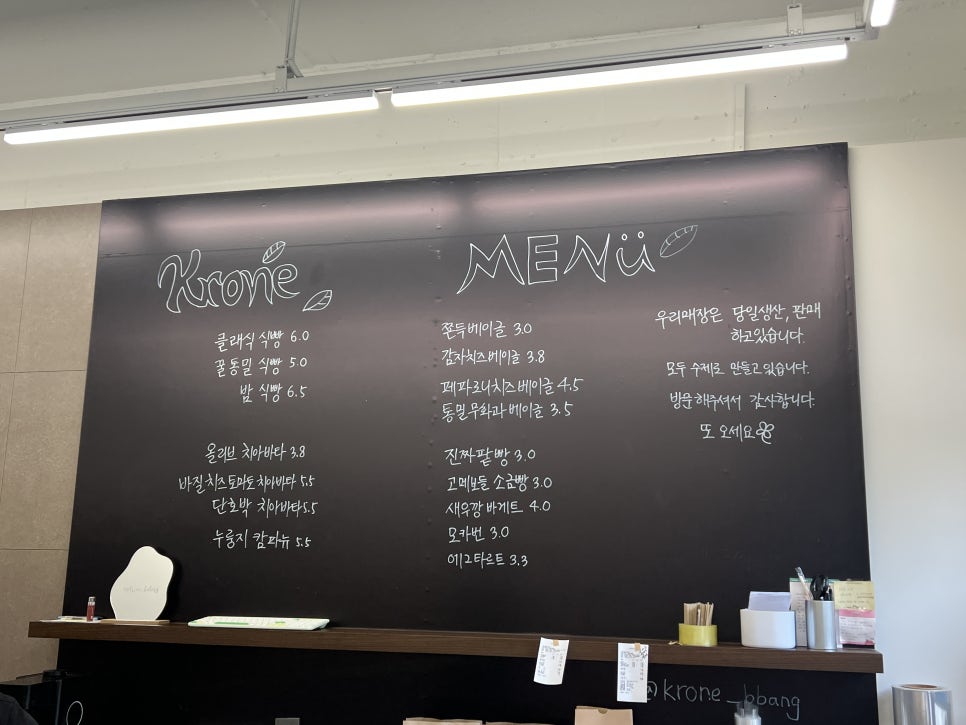 Krone
클래식 식빵 6.0
꿀통밀 식빵 5.0
밤 식빵 6.5
올리브 치아바타 3.8
바질치즈토마토치아바타 5.5
단호박 치아바타 5.5
누룽지 캄파뉴 5.5
MENü
쫀득베이글 3.0
감자치즈베이글 3.8
페파로니치즈베이글 4.5
통밀무화과베이글 3.5
진짜팥빵 3.0
고메버틀 소금빵 3.0
새우깡바게트 4.0
모카번 3.0
에그타르트 3.3
우리매장은 당일생산, 판매
하고있습니다.
모두 수제로 만들고있습니다.
방문해주셔서 감사합니다.
또 오세요
@krone_bbang